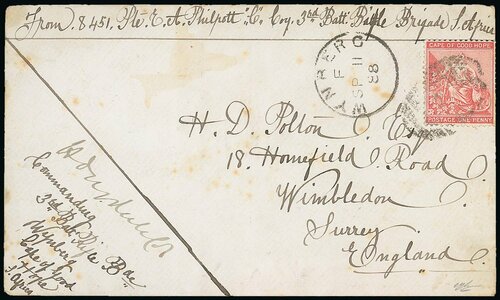 From 8451, Pte. E. A. Philpott "C" Coy. 3rd Batt. Rifle Brigade S. Africa
WYNBERG
F
SP 11
98
CAPE OF GOOD HOPE
POSTAGE ONE PENNY
H. D. Polton
18. Homefield Road
Wimbledon
Surrey
England
Commanding
3rd Batt. Rifle Bde
Wynberg
Cape of Good
Hope
S. Africa